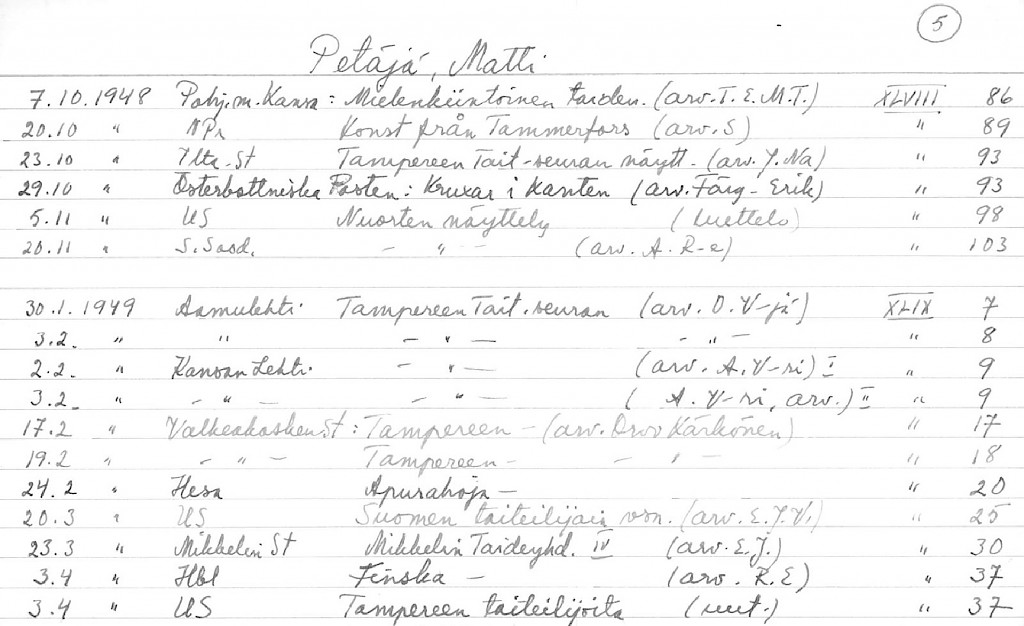 5
Petäjä, Matti
7.10.1948 Pohj.m. Kansa : Mielenkiintoinen taiden. (arv. T.E.M.T.) XLVIII 86
20.10 " NPr Konst från Tammerfors (arv. S) " 89
23.10 " Ilta-St Tampereen Tait-seuran näytt. (arv. J. Na) " 93
29.10 " Österbottniska Posten : Kruxar i kanten (arv. Färg-Erik) " 93
5.11 " US Nuorten näyttely (Luettelo) " 98
20.11 " S. Sosd. - " - (arv. A. R-a) " 103
30.1.1949 Aamulehti Tampereen Tait.seuran (arv. O. V-jä) XLIX 7
3.2. " " - " - - " - " 8
2.2. " Kansan Lehti - " - (arv. A. V-ri) I " 9
3.2. " - " - - " - (A. V-ri, arv.) II " 9
17.2 " Valkeakosken St : Tampereen - (arv. Kärkönen) " 17
19.2 " - " - Tampereen - - " - " 18
24.2 " Hesa Apurahoja - " 20
20.3 " US Suomen taiteilijain vsn. (arv. E.J.V.) " 25
23.3 " Mikkelin St Mikkelin Taideyhd. IV (arv. E.J.) " 30
3.4 " Hbl Finska - (arv. R.E) " 37
3.4 " US Tampereen taiteilijoita (uut.) " 37